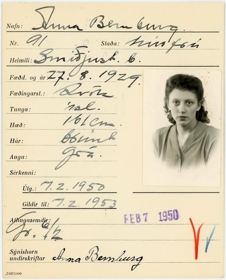 Nafn: Anna Bernburg.
Nr. 91 Staða: húsfrú
Heimili: Smiðjust. 6.
Fædd. og ár 27.8.1929.
Fæðingarst. Rvík
Tunga: ísl.
Hæð: 161 cm.
Hár:
Augu: grá.
Sérkenni:
Útg.: 7.2.1950
Gildir til: 7.2.1953
FEB 7 1950
Athugasemdir:
Sýnishorn
undirskriftar Anna Bernburg